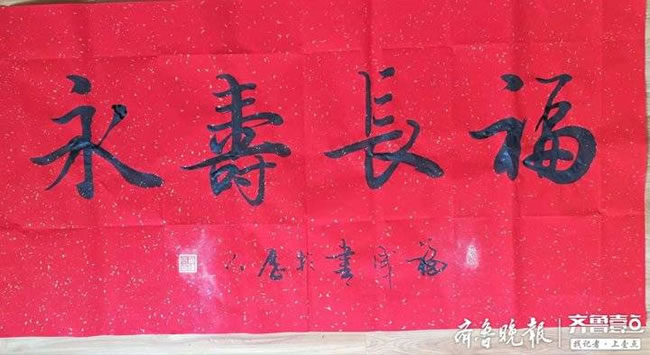 福長壽永
福成書於
齐鲁晚报
齐鲁壹点
找记者·上壹点